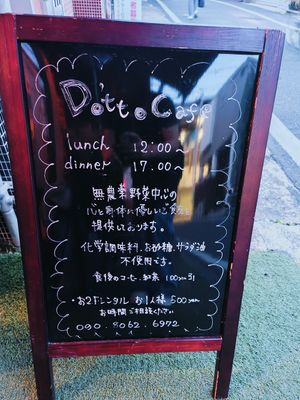 Dotto Cafe
lunch 12:00〜
dinner 17.00〜
無農薬野菜中心の
心と身体に優しいご食事を
提供しております。
化学調味料、お砂糖、サラダ油
不使用です。
食後のコーヒー、紅茶 100yen引
・お2Fレンタル お1人様 500yen
お時間ご相談ください
090.8062.6972